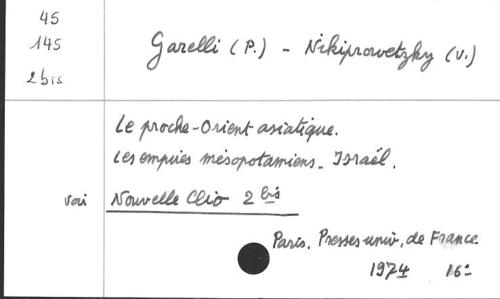 45
145
2 bis
Garelli (P.) - Nikiprowetzky (V.)
Le proche-Orient asiatique.
Les empires mésopotamiens - Israël.
voir Nouvelle Clio 2 bis
Paris, Presses univ. de France
1974 16°